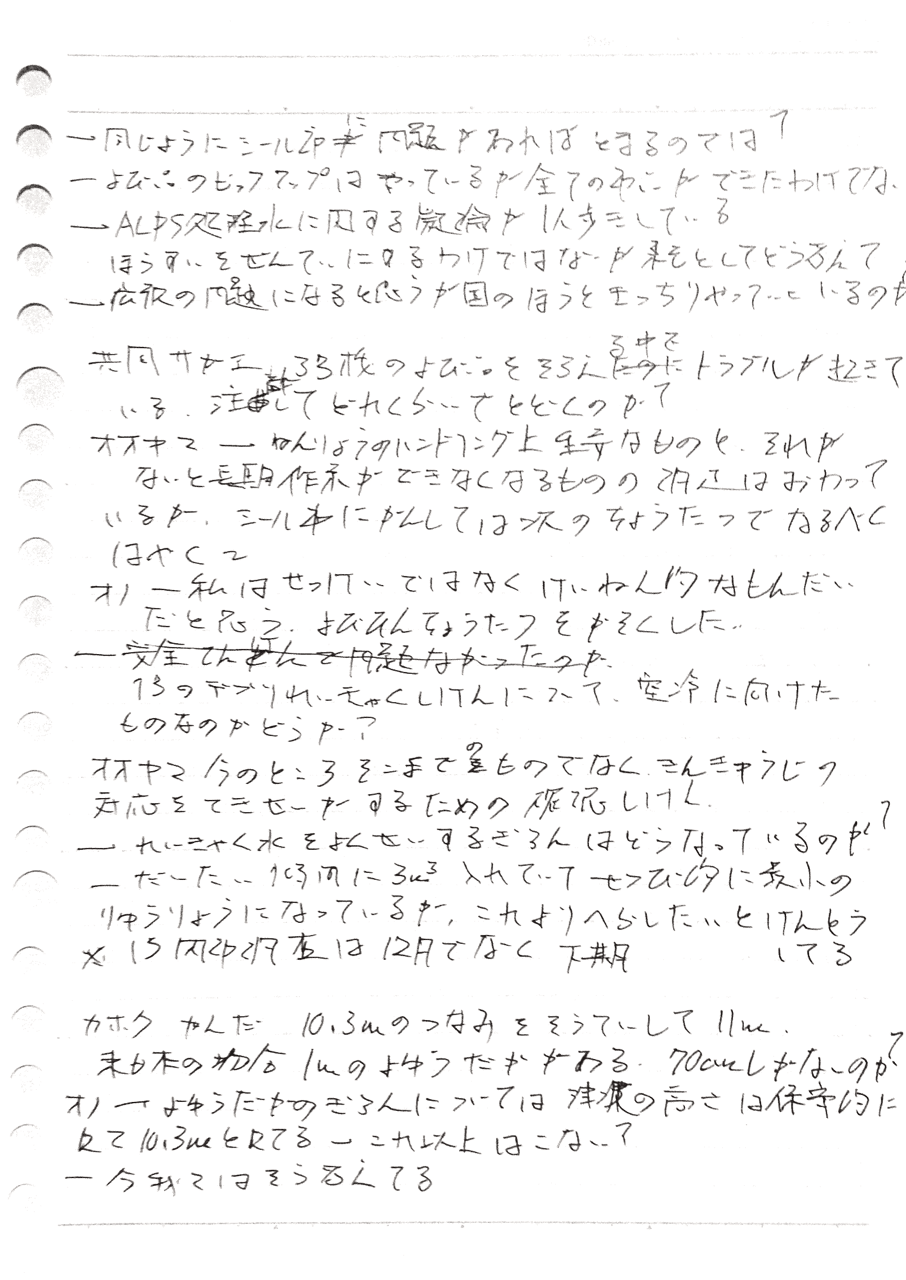 → 同じようにシール部に問題があればとまるのでは?
→ よび品のピックアップはやっているが全てのわこができたわけでな
→ ALPS処理水に関する議論が1人歩きしている
ほうすいをぜんていにするわけではないが東電としてどう考えて
→ 広報の問題になると思うが国のほうときっちりやっていているのか
共同 サカエ 33機のよび品をそろえる中でトラブルが起きて
いる。注してどれくらいでとどくのか?
オオヤマ ー ねんりょうのハンドリング上重要なものと、それが
ないと長期作業ができなくなるものの は おわって
いるが、シール本にかんしては次のちょうたつでなるべく
はやく〜
オノ ー 私はせっけいではなくけいねん的なもんだい
だと思う。よびひんちょうたつをおそくした。
ー 安全てんけんで問題なかったのか
1Sのデブリれいきゃくしけんについて、空冷に向けた
ものなのかどうか?
オオヤマ 今のところそこまでのものでなく、きんきゅうじの
対応をてきせーがするための確認しけん
ー れいきゃく水をよくせいするぎろんはどうなっているのか?
ー だいたい 1時間に3m³ 入れていてせつび的に最小の
りゅうりょうになっているが、これよりへらしたいとけんとう
してる
× 1S内部調査は12月でなく 下期
カホク かんだ 10.3mのつなみをそうていして11m.
東日本の場合 1mのよゆうだかがある. 70cmしかないのか?
オノ ー よゆうだかのぎろんについては 津波の高さは保守的に
見て10.3mと見てる ー これ以上はこない?
ー 今我々はそう考えてる